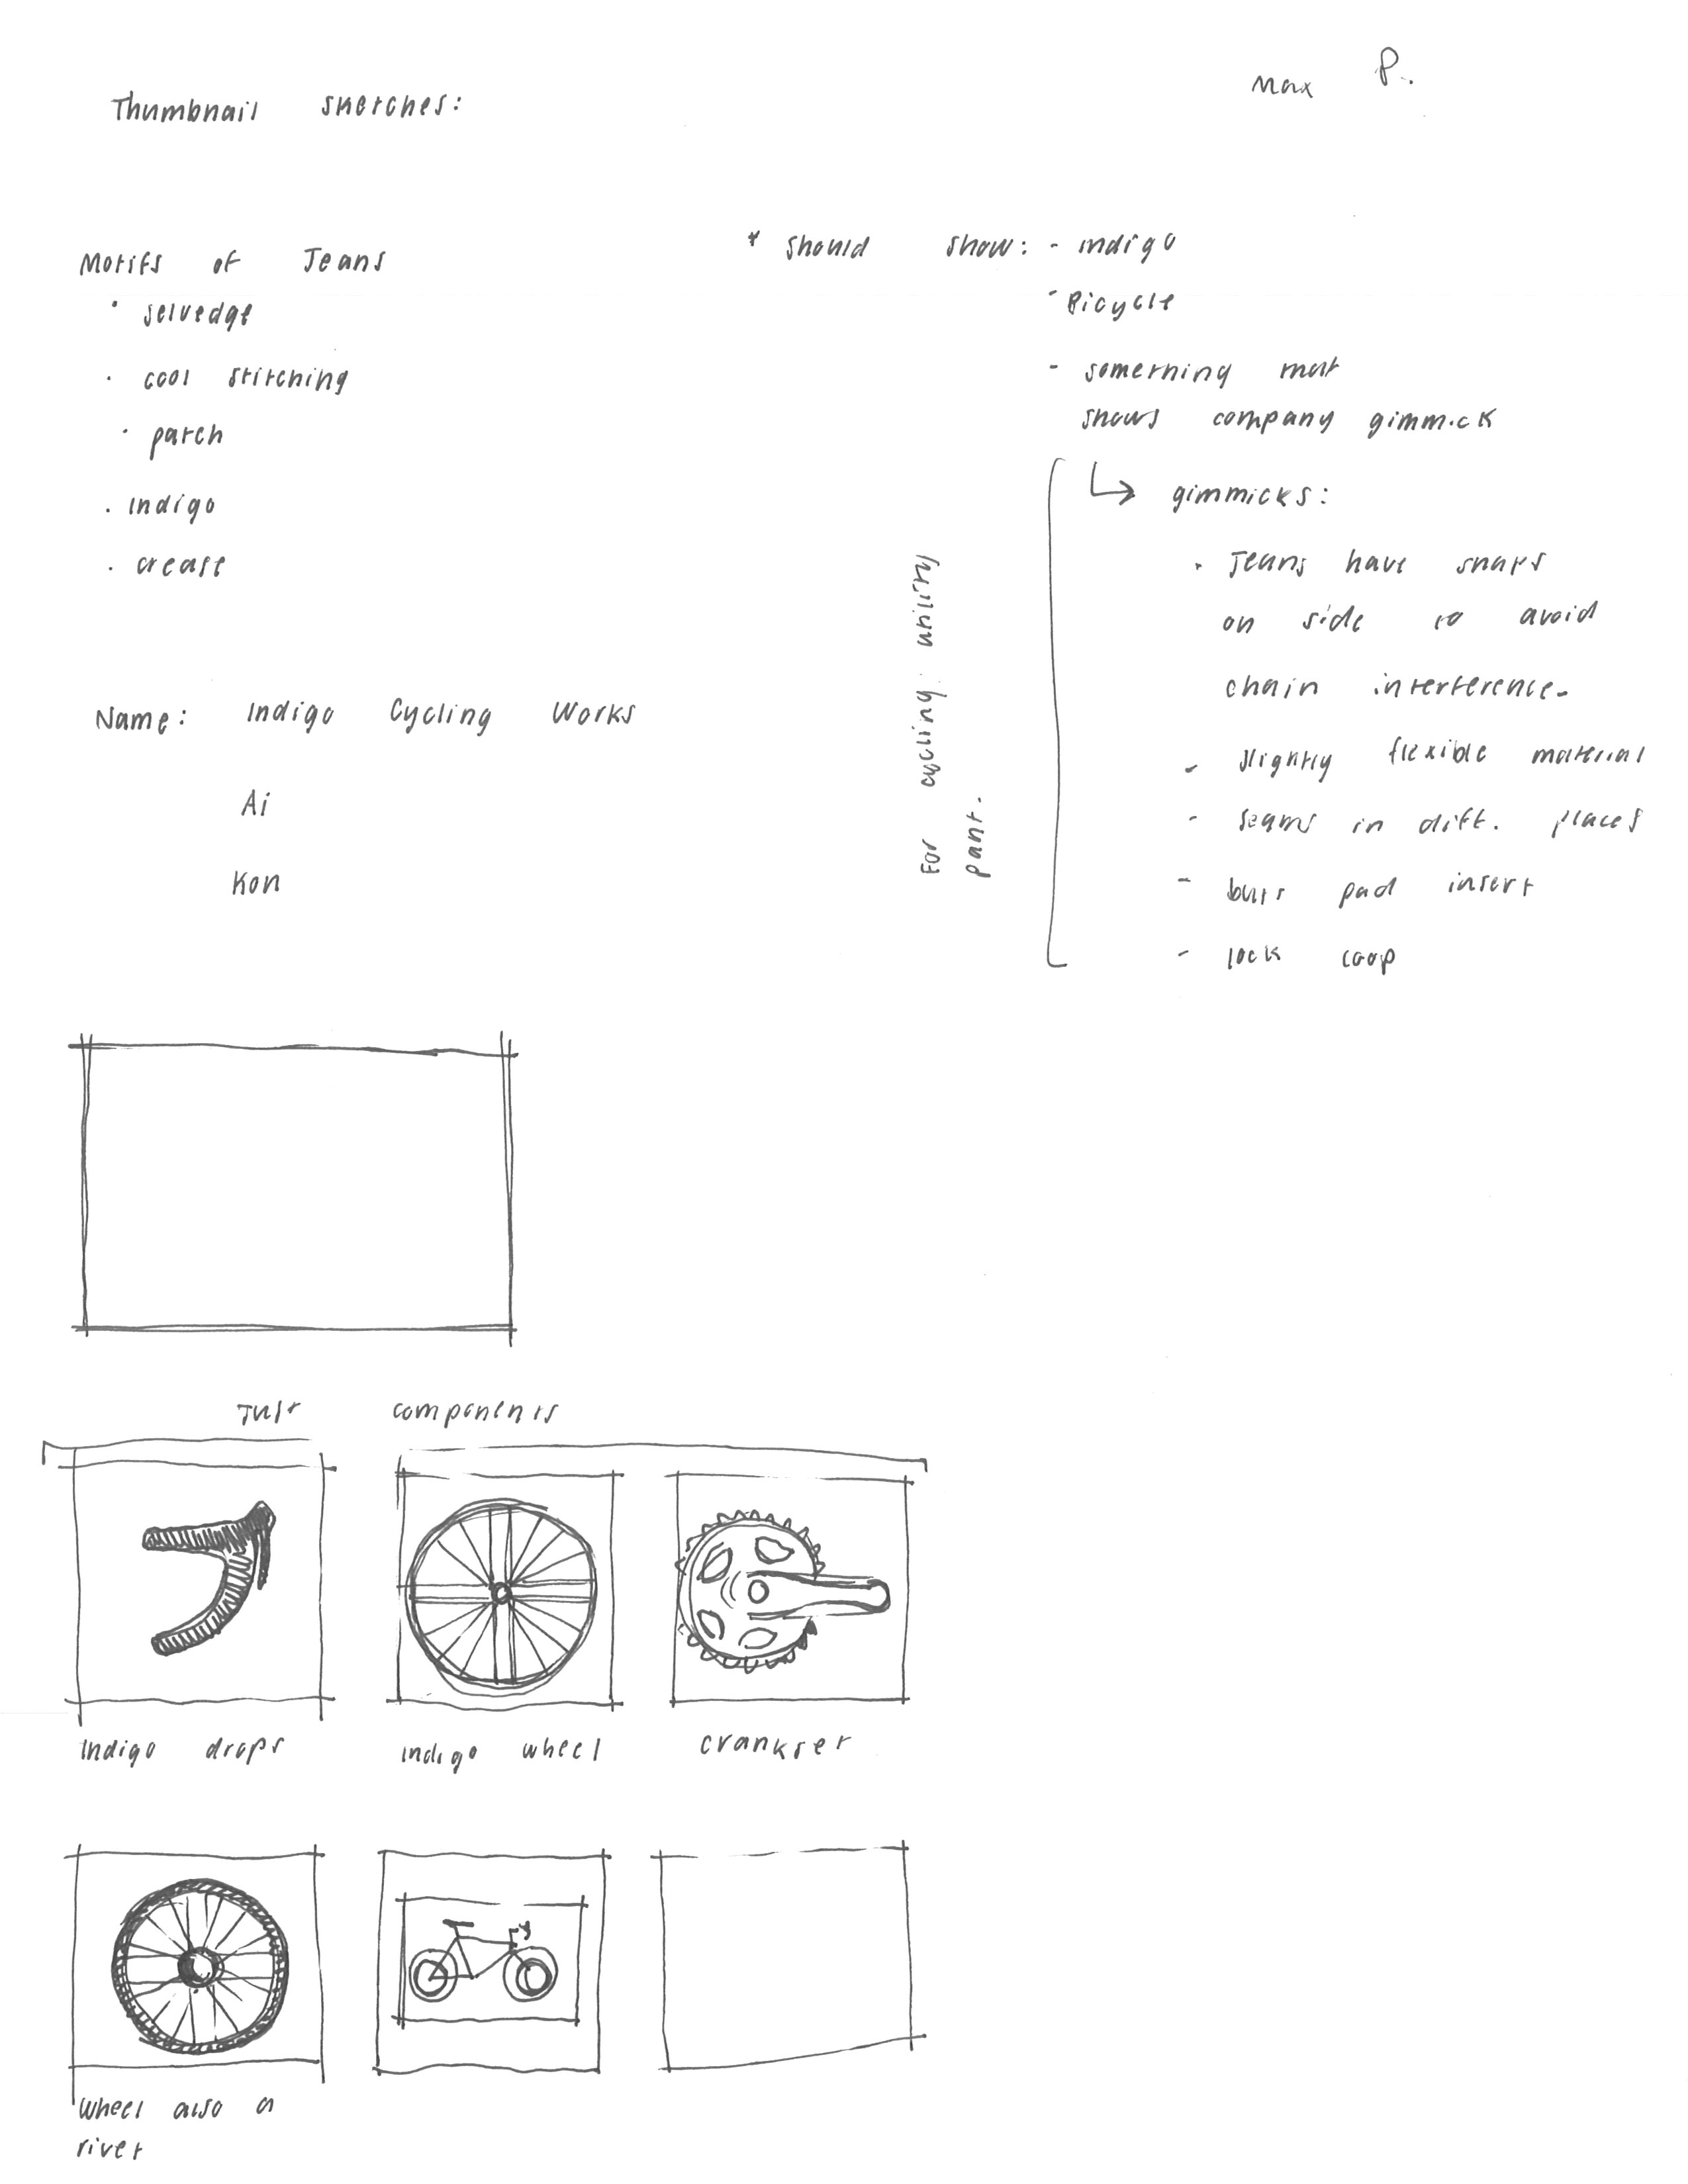 Max P.
Thumbnail sketches:
Motifs of Jeans
• selvedge
• cool stitching
• patch
• Indigo
• crease
Name: Indigo Cycling Works
Ai
Kon
* should show: - indigo
- Bicycle
- something that
shows company gimmick
↳ gimmicks:
• Jeans have snaps
on side to avoid
chain interference.
- slightly flexible material
- seams in diff. places
- butt pad insert
- lock loop
For cycling utility
pant.
Just components
Indigo drops
indigo wheel
crankset
wheel also a
rivet